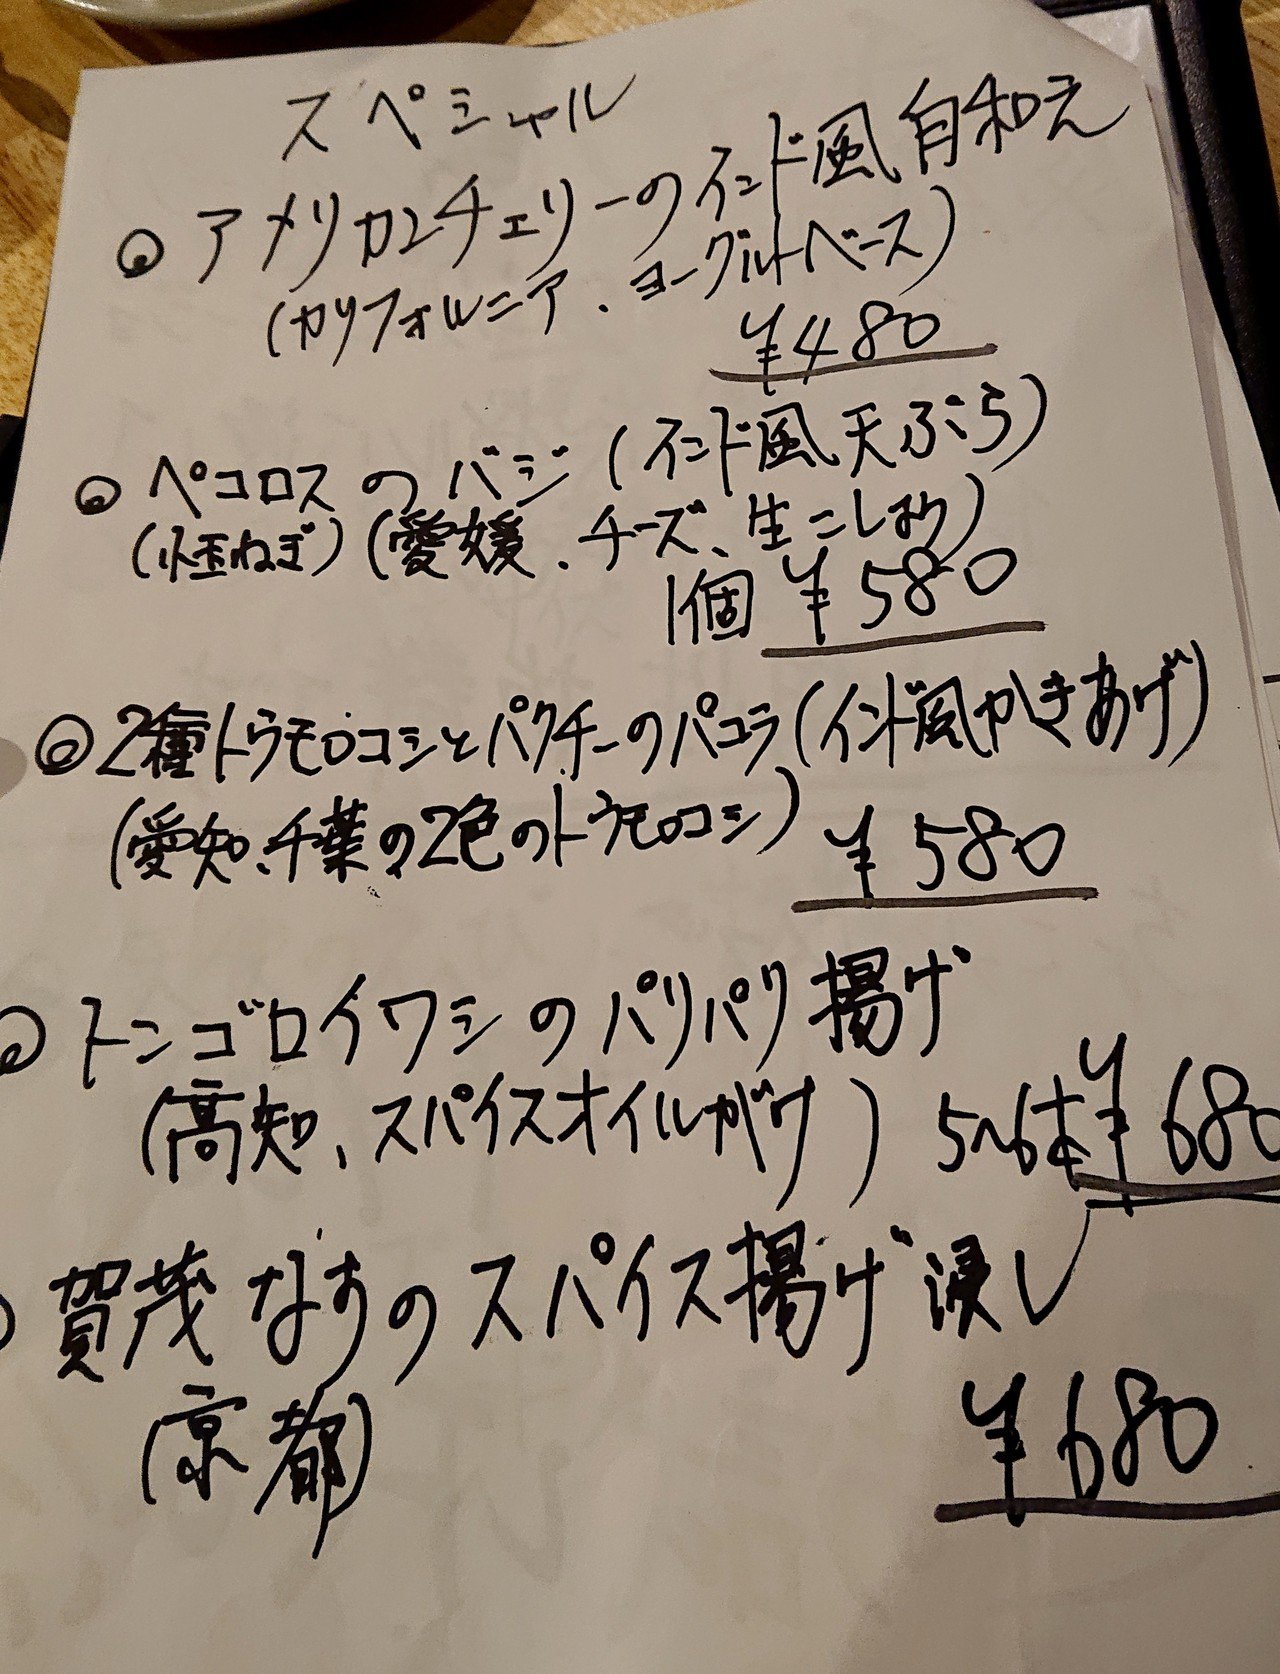 スペシャル
◎アメリカンチェリーのインド風白和え
(カリフォルニア、ヨーグルトベース)
¥480
◎ペコロスのバジ(インド風天ぷら)
(小玉ねぎ)(愛媛、チーズ、生こしょう)
1個 ¥580
◎2種トウモロコシとパクチーのパコラ(インド風かきあげ)
(愛知、千葉の2色のトウモロコシ) ¥580
◎トンゴロイワシのパリパリ揚げ
(高知、スパイスオイルがけ) 5〜6本 ¥680
賀茂なすのスパイス揚げ浸し
(京都) ¥680